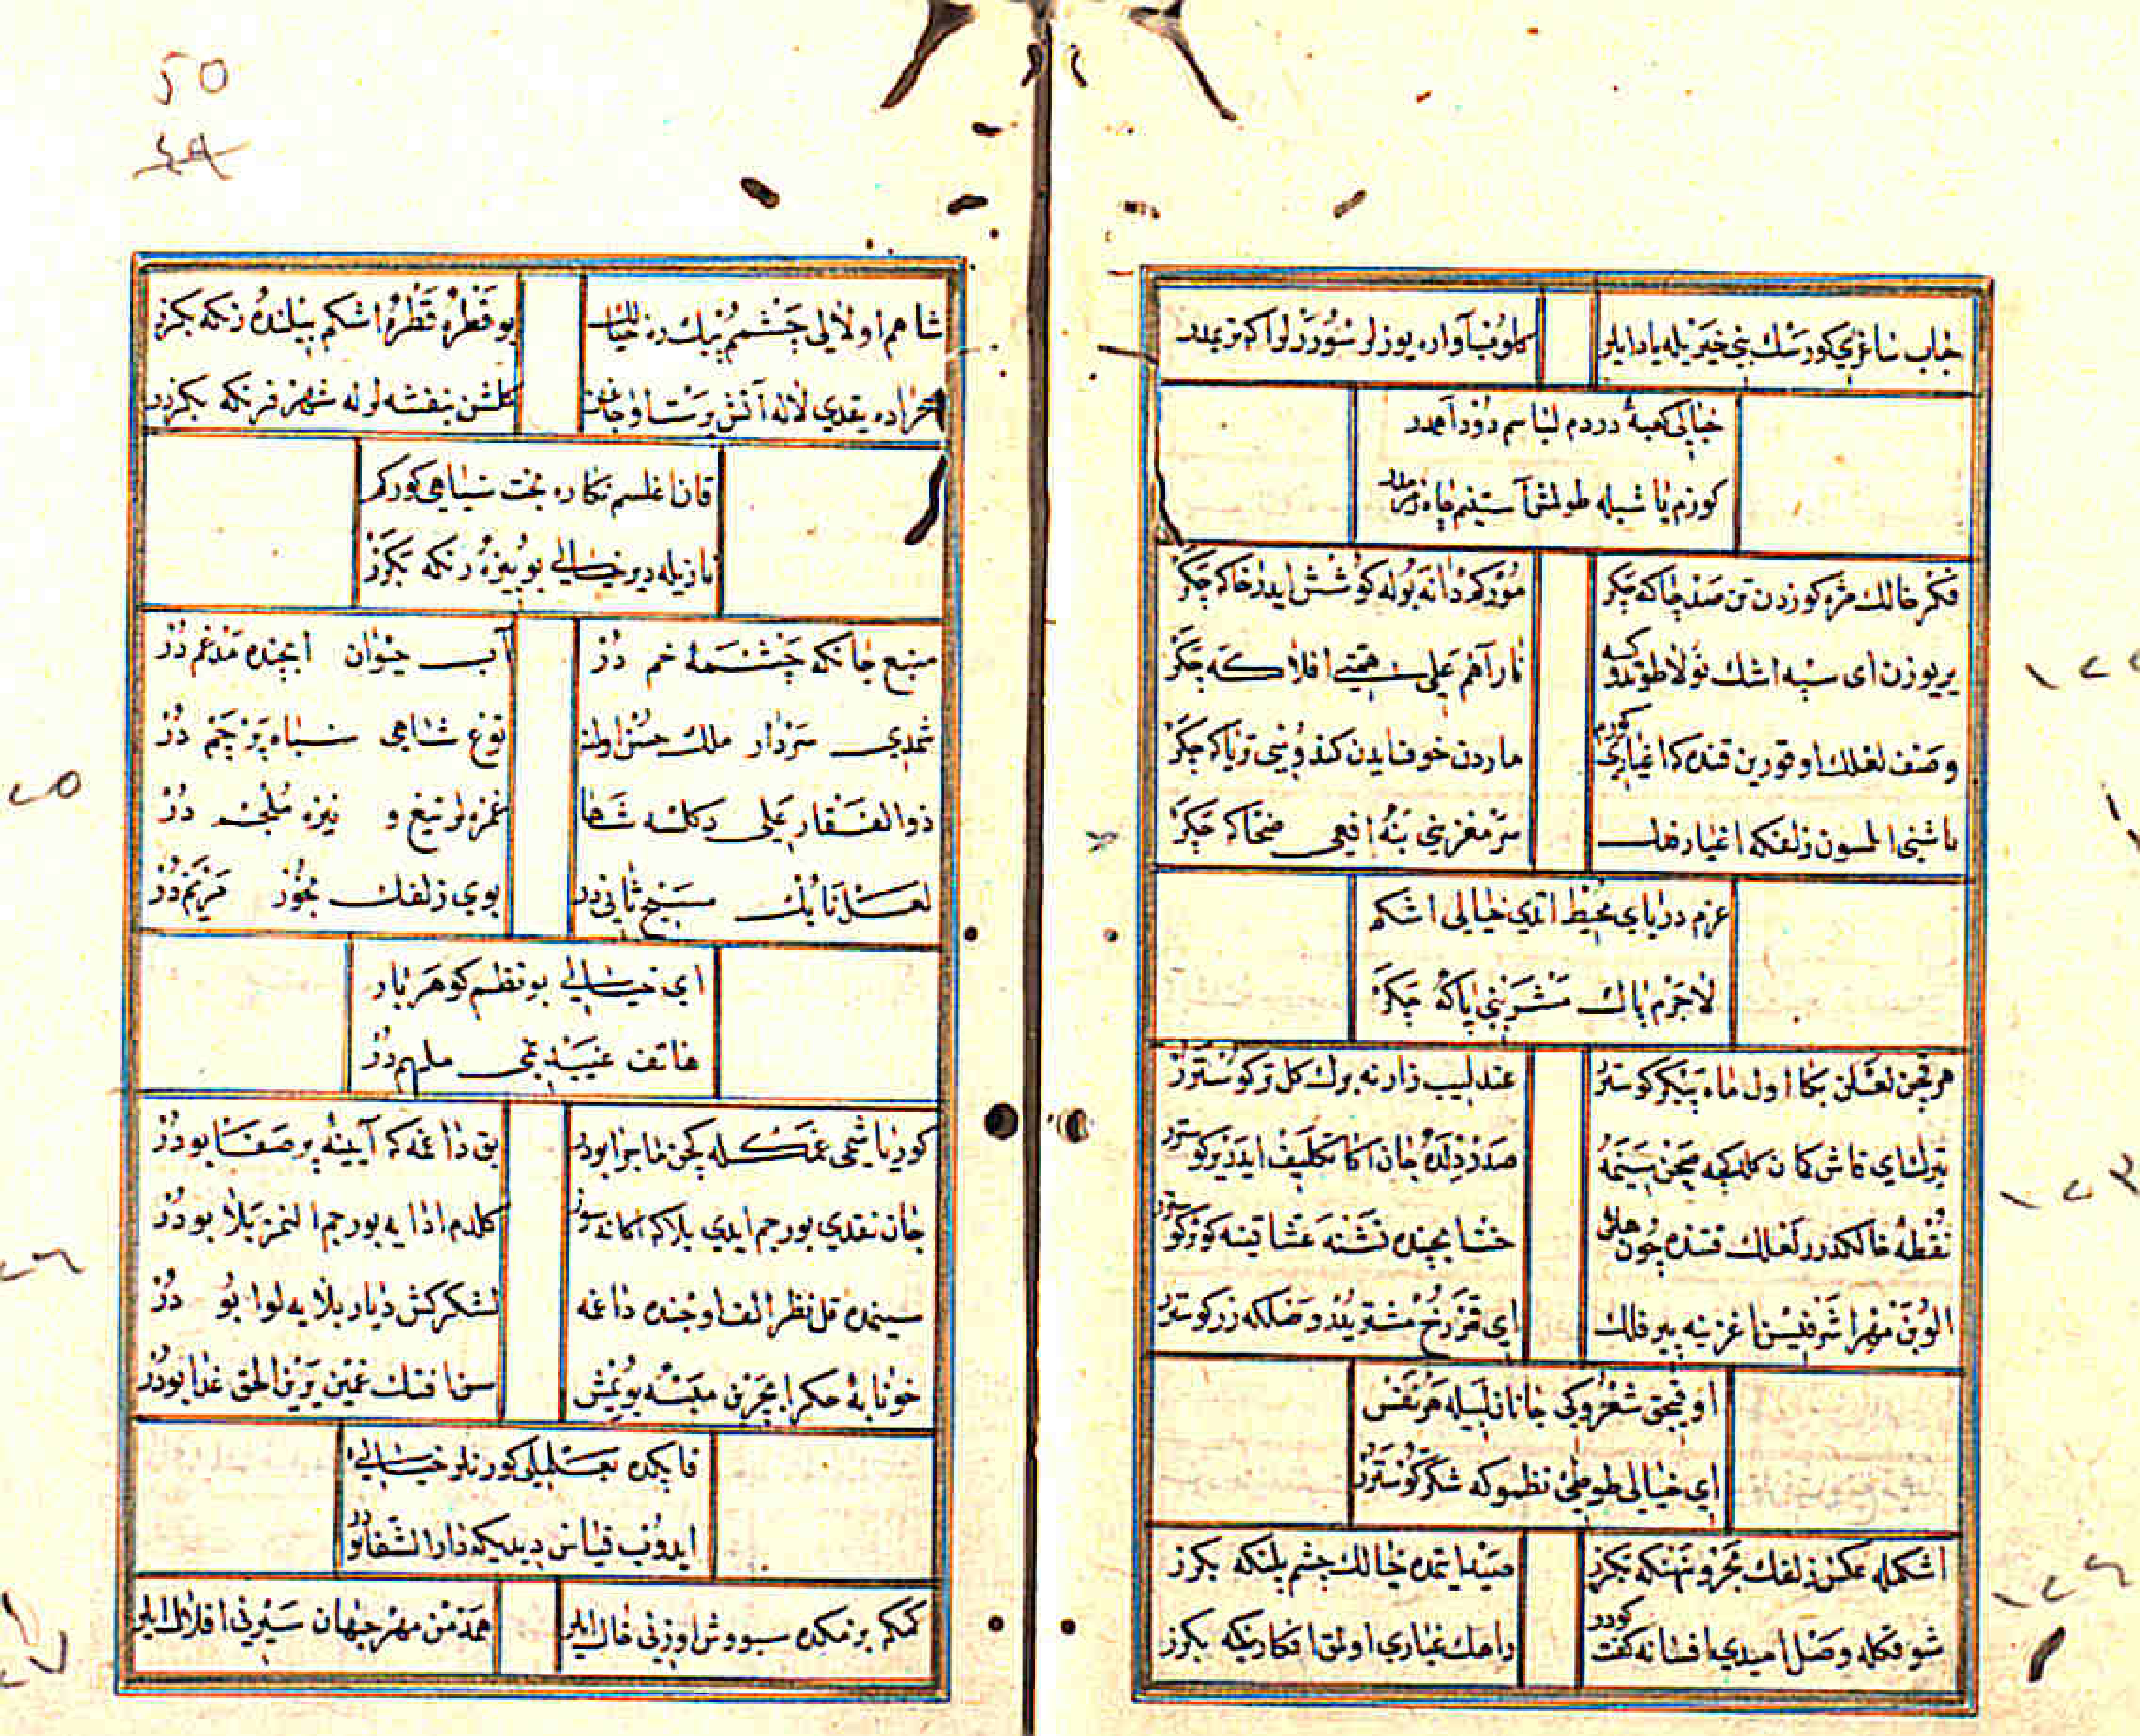 جناب ساغری کورسك بنی خیر یله یاد ایلر
کلوب آواره یوزلر سوررلر اکه تریمدر
خیالی کعبۀ دردم لباسم دود آهمدر
کوزم یاشیله طولمش آستینم چاه زمزمدر
فکر خالك مژه کوزدن تن صد چاکه چکر
مور کم دانه بوله کوشش ایدر خاکه چکر
یر یوزن ای سپه اشك نولا طوتدوکه
نار آهم علی همتی افلاکه چکر
وصف لعلك اوقورین قنده که اغیاری کورم
ماردن خوف ایدن کندونی تریاکه چکر
باشنی المسون زلفکه اغیار فلك
سر مغزینی بنه افعی ضحاکه چکر
عزم دریای محیط اتدی خیالی اشکم
لاجرم پاك مشربنی پاکه چکر
هر قچن لعلن بکا اول ماه پیکر کوستر
عندلیب زارنه برك کل تر کوسترر
تیرك ای قاش کمان کلدکچه صحن سینمه
صدر دلده جان اکا تکلیف ایدر یر کوسترر
نقطۀ خالکدرر لعلك قتنده چون هلال
خشا یچنده تشنه عشاقینه کوثر کوسترر
الوبن مهر اشرفیسن اغزینه پیر فلك
ای قمر رخ مشتریلد وصلکه زر کوسترر
اوقیجق شعروکی جانان لبیله هر نفس
ای خیالی طوطئ نظموکه شکر کوسترر
اشکمله عکس زلفك بحر و نهنکه بکزر
صید ایتمده خیالك چشم پلنکه بکزر
شوقکله وصل امیدی افسانه کفت کودر
راهك غباری اولمق افکار بنکه بکزر
50
٤٩
شاهم اولالی چشمم نیك ده خیالك
بو قطره قطره اشکم بیلنده زنکه بکزر
صحراده یقدی لاله آتش پرست اوجاغن
کلشن بنفشه لرله شهر فرنکه بکزر
قان اغلسم نکاره بخت سیاهی کورکم
نازیله دیر خیالی بو بیزه رنکه بکزر
منبع جانکه چشمۀ خم در
آب حیوان ایچنده مدغم در
شمدی سردار ملك حسن اولدك
توغ شاهی سیاه پرچم در
ذوالفقار علی دکلسه شها
غمزه لر تیغ و نیزه ملجم در
لعل نابك مسیح ثانی در
بوی زلفك بخور مریم در
ای خیالی بو نظم کوهر بار
هاتف غیبدنمی ملهم در
کور یاشمی غمکله کچن ماجرا بودر
بق داغمه که آیینۀ پر صفا بودر
جان نقدی بورجم ایدی بلاکه اکا نه سوز
کلدم ادایه بورجم النمز بلا بودر
سینمده قل نظر الف اوجنده داغمه
لشکر کش دیار بلایه لوا بو در
خونابۀ جکر ایچرین معتسه یویمش
سن افتك غمین یرین الحق غدا بودر
قاپکده نعلیلی کورنلر خیالی
ایدوب قیاس دیدیکه دار الشفا بودر
کمکم بزمکده سبووش اوزنی خاك ایلر
همدمن مهر جهان سیرنی افلاك ایلر